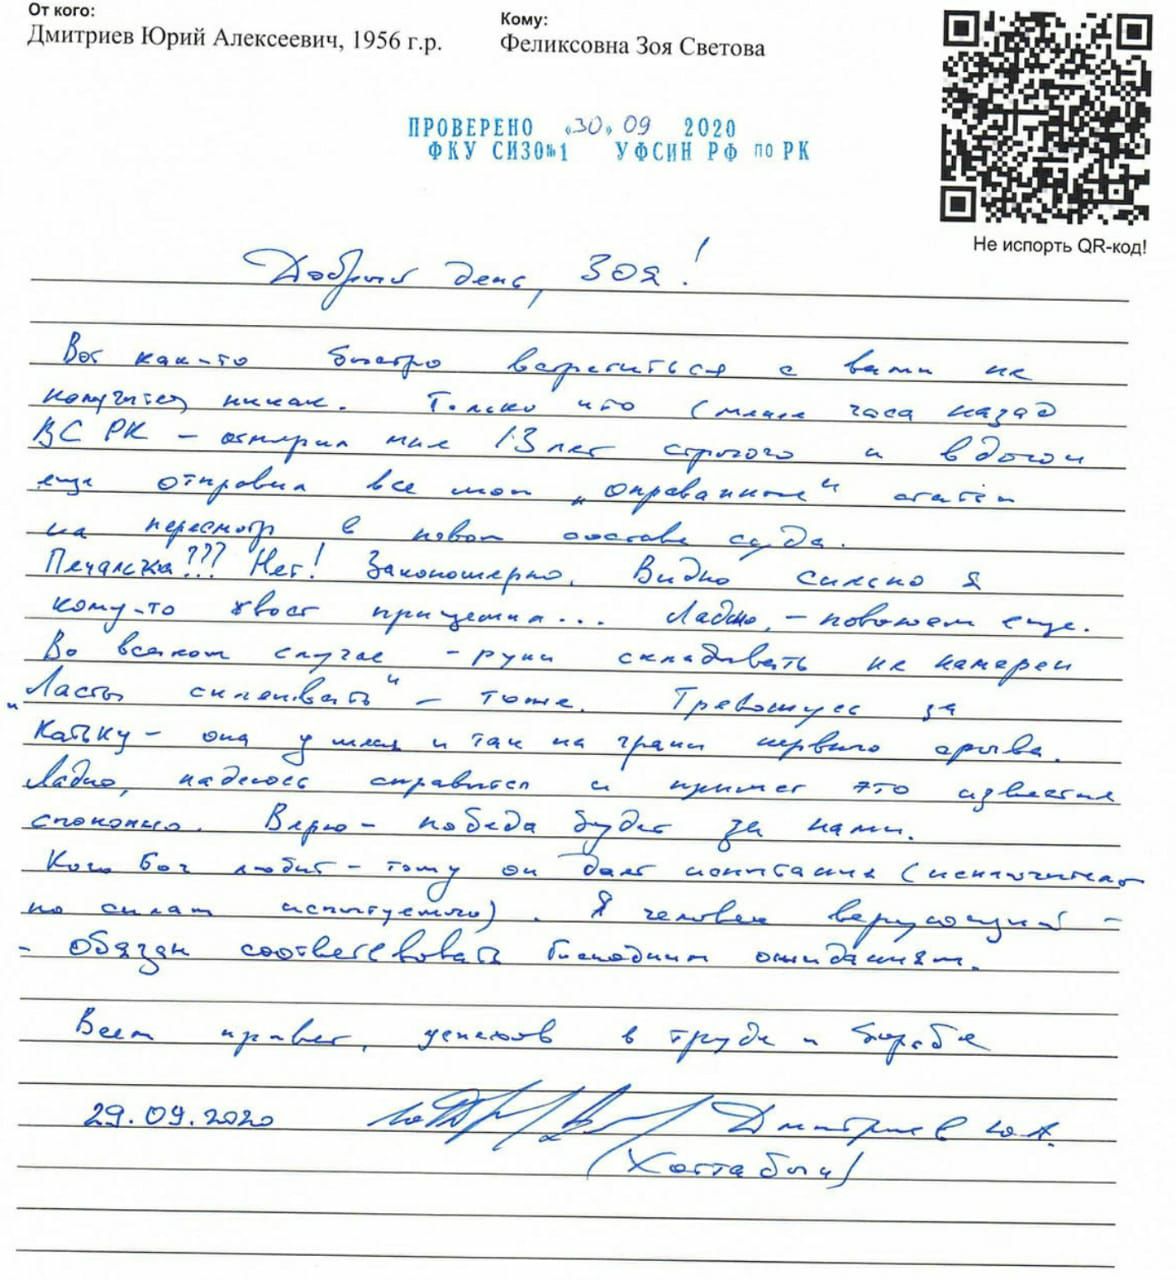 От кого:
Дмитриев Юрий Алексеевич, 1956 г.р.
Кому:
Феликсовна Зоя Светова
ПРОВЕРЕНО «30» 09 2020
ФКУ СИЗО №1 УФСИН РФ по РК
Не испорть QR-код!
Добрый день, Зоя!
Вот как-то быстро встретиться с вами не
получится никак. Только что (менее часа назад
ВС РК – отмерил мне 13 лет строгого и вдогон
еще отправил все мои „оправданные" статьи
на пересмотр в новом составе суда.
Печалька??? Нет! Закономерно. Видно сильно я
кому-то хвост прищемил... Ладно, – повоюем еще.
Во всяком случае – руки складывать не намерен
„Ласты склеивать" – тоже. Тревожусь за
Катьку – она у меня и так на грани нервного срыва.
Ладно, надеюсь справится и примет это известие
спокойно. Верю – победа будет за нами.
Кого бог любит – тому он дает испытания (исключительно
по силам испытуемого). Я человек верующий –
– обязан соответствовать ожиданиям.
Всем привет, успехов в труде и борьбе
29.09.2020 Дмитриев Ю.А.
(Хоттабыч)